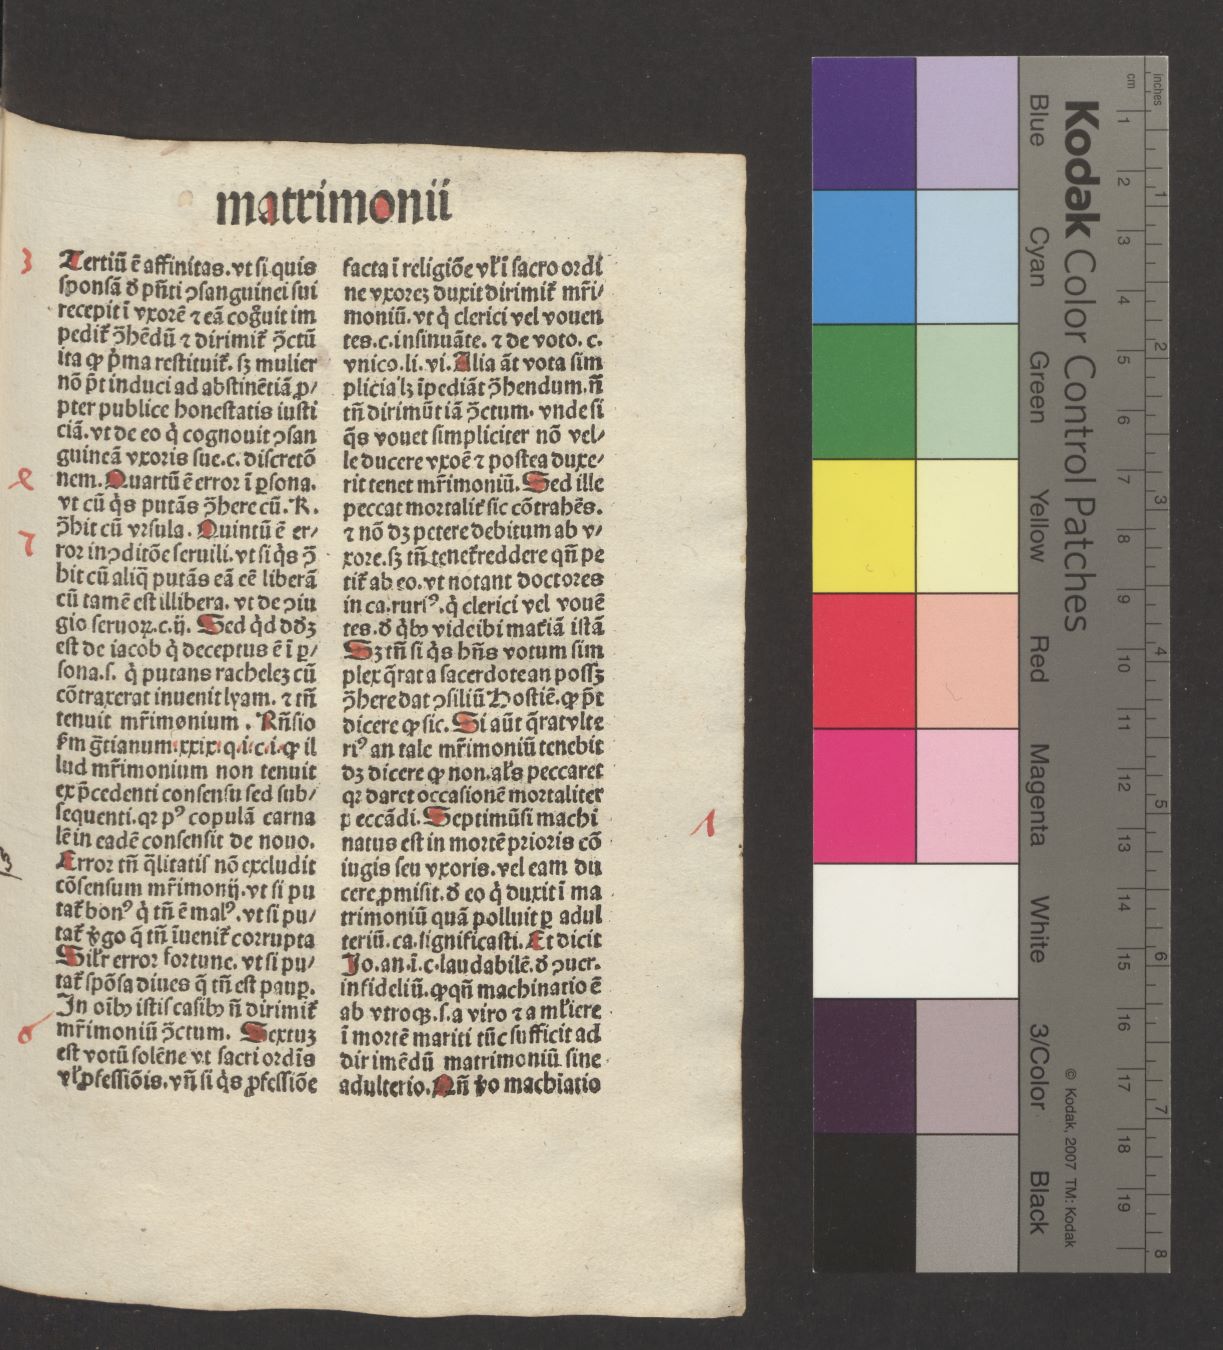 matrimonii
3
Tertiū ē affinitas. vt si quis
sponsā ð pn̄ti ↄsanguinei sui
recepit ī vxorē ⁊ eā cog̃uit im
pedit᷑ ↄ̄hēdū ⁊ dirimit᷑ ↄ̄ctū
ita ꝙ p̄ma restituit᷑. sꝫ mulier
nō pt̄ induci ad abstinētiā ꝓ/
pter publice honestatis iusti
ciā. vt de eo q̇ cognouit ↄsan
guineā vxoris sue. c. discretō
nem. Quartū ē error ī ꝑsona.
vt cū q̇s putās ↄ̄here cū. K.
ↄ̄hit cū vrsula. Quintū ē er/
7
ror in ↄditōe seruili. vt si q̇s ↄ̄
hit cū aliq̄ putās eā eē liberā
cū tamē est illibera. vt de ↄiu
gio seruoꝝ. c. ij. Sed q̇d dðꝫ
est de iacob q̇ deceptus ē ī ꝑ/
sona. s. q̇ putans rachelez cū
cōtraxerat inuenit lyam. ⁊ tn̄
tenuit mr̄imonium. Rn̄sio
sm̄ g̅tianum. xxix. q. i. c. i. ꝙ il
lud mr̄imonium non tenuit
ex p̄cedenti consensu sed sub/
sequenti. qꝛ pꝰ copulā carna
lē in eadē consensit de nouo.
Error tn̄ q̄litatis nō excludit
cōsensum mr̄imonij. vt si pu
tat᷑ bonꝰ q̇ tn̄ ē malꝰ. vt si pu/
tat᷑ v̓go q̄ tn̄ īuenit᷑ corrupta
Silr̄ error fortune. vt si pu/
tat᷑ spōsa diues q̄ tn̄ est pauꝑ.
In oībꝫ istis casibꝫ n̄ dirimit᷑
mr̄imoniū ↄ̄ctum. Sextuz
est votū solēne vt sacri ordīs
vl̓ ꝓfessiōis. vn̄ si q̇s ꝓfessiōe
facta ī religiōe vl̓ ī sacro ordī
ne vxorez duxit dirimit᷑ mr̄i/
moniū. vt q̇ clerici vel vouen
tes. c. insinuāte. ⁊ de voto. c.
vnico. li. vi. Alia āt vota sim
plicia lꝫ īpediāt ↄ̄hendum. n̄
tn̄ dirimūt iā ↄ̄ctum. vnde si
q̇s vouet simpliciter nō vel/
le ducere vxoē ⁊ postea duxe/
rit tenet mr̄imoniū. Sed ille
peccat mortalit᷑ sic cōtrahēs.
⁊ nō dꝫ petere debitum ab v/
xore. sꝫ tn̄ tenet᷑ reddere qn̄ pe
tit᷑ ab eo. vt notant doctores
in ca. rurꝰ. q̇ clerici vel vouē
tes. ð q̇bꝫ vide ibi mat᷑iā istā
Sꝫ tn̄ si q̇s hn̄s votum sim
plex q̄rat a sacerdote an possꝫ
ↄ̄here dat ↄsiliū Hostiē. ꝙ pt̄
dicere ꝙ sic. Si aūt q̄rat vlte
riꝰ an tale mr̄imoniū tenebit
dꝫ dicere ꝙ non. al̓s peccaret
qꝛ daret occasionē mortaliter
peccādi. Septimū si machi
1
natus est in mortē prioris cō
iugis seu vxoris. vel eam du
cere ꝓmisit. ð eo q̇ duxit ī ma
trimoniū quā polluit ꝑ adul
teriū. ca. significasti. Et dicit
Jo. an. ī. c. laudabilē. ð ↄuer.
infideliū. ꝙ qn̄ machinatio ē
ab vtroqꝫ. s. a viro ⁊ a ml̓iere
ī mortē mariti tūc sufficit ad
dirimēdū matrimoniū sine
adulterio. Qn̄ v̓o machiatio
Kodak Color Control Patches
Blue
Cyan
Green
Yellow
Red
Magenta
White
3/Color
Black
© Kodak, 2007 TM: Kodak
inches
1
2
3
4
5
6
7
8
cm
1
2
3
4
5
6
7
8
9
10
11
12
13
14
15
16
17
18
19